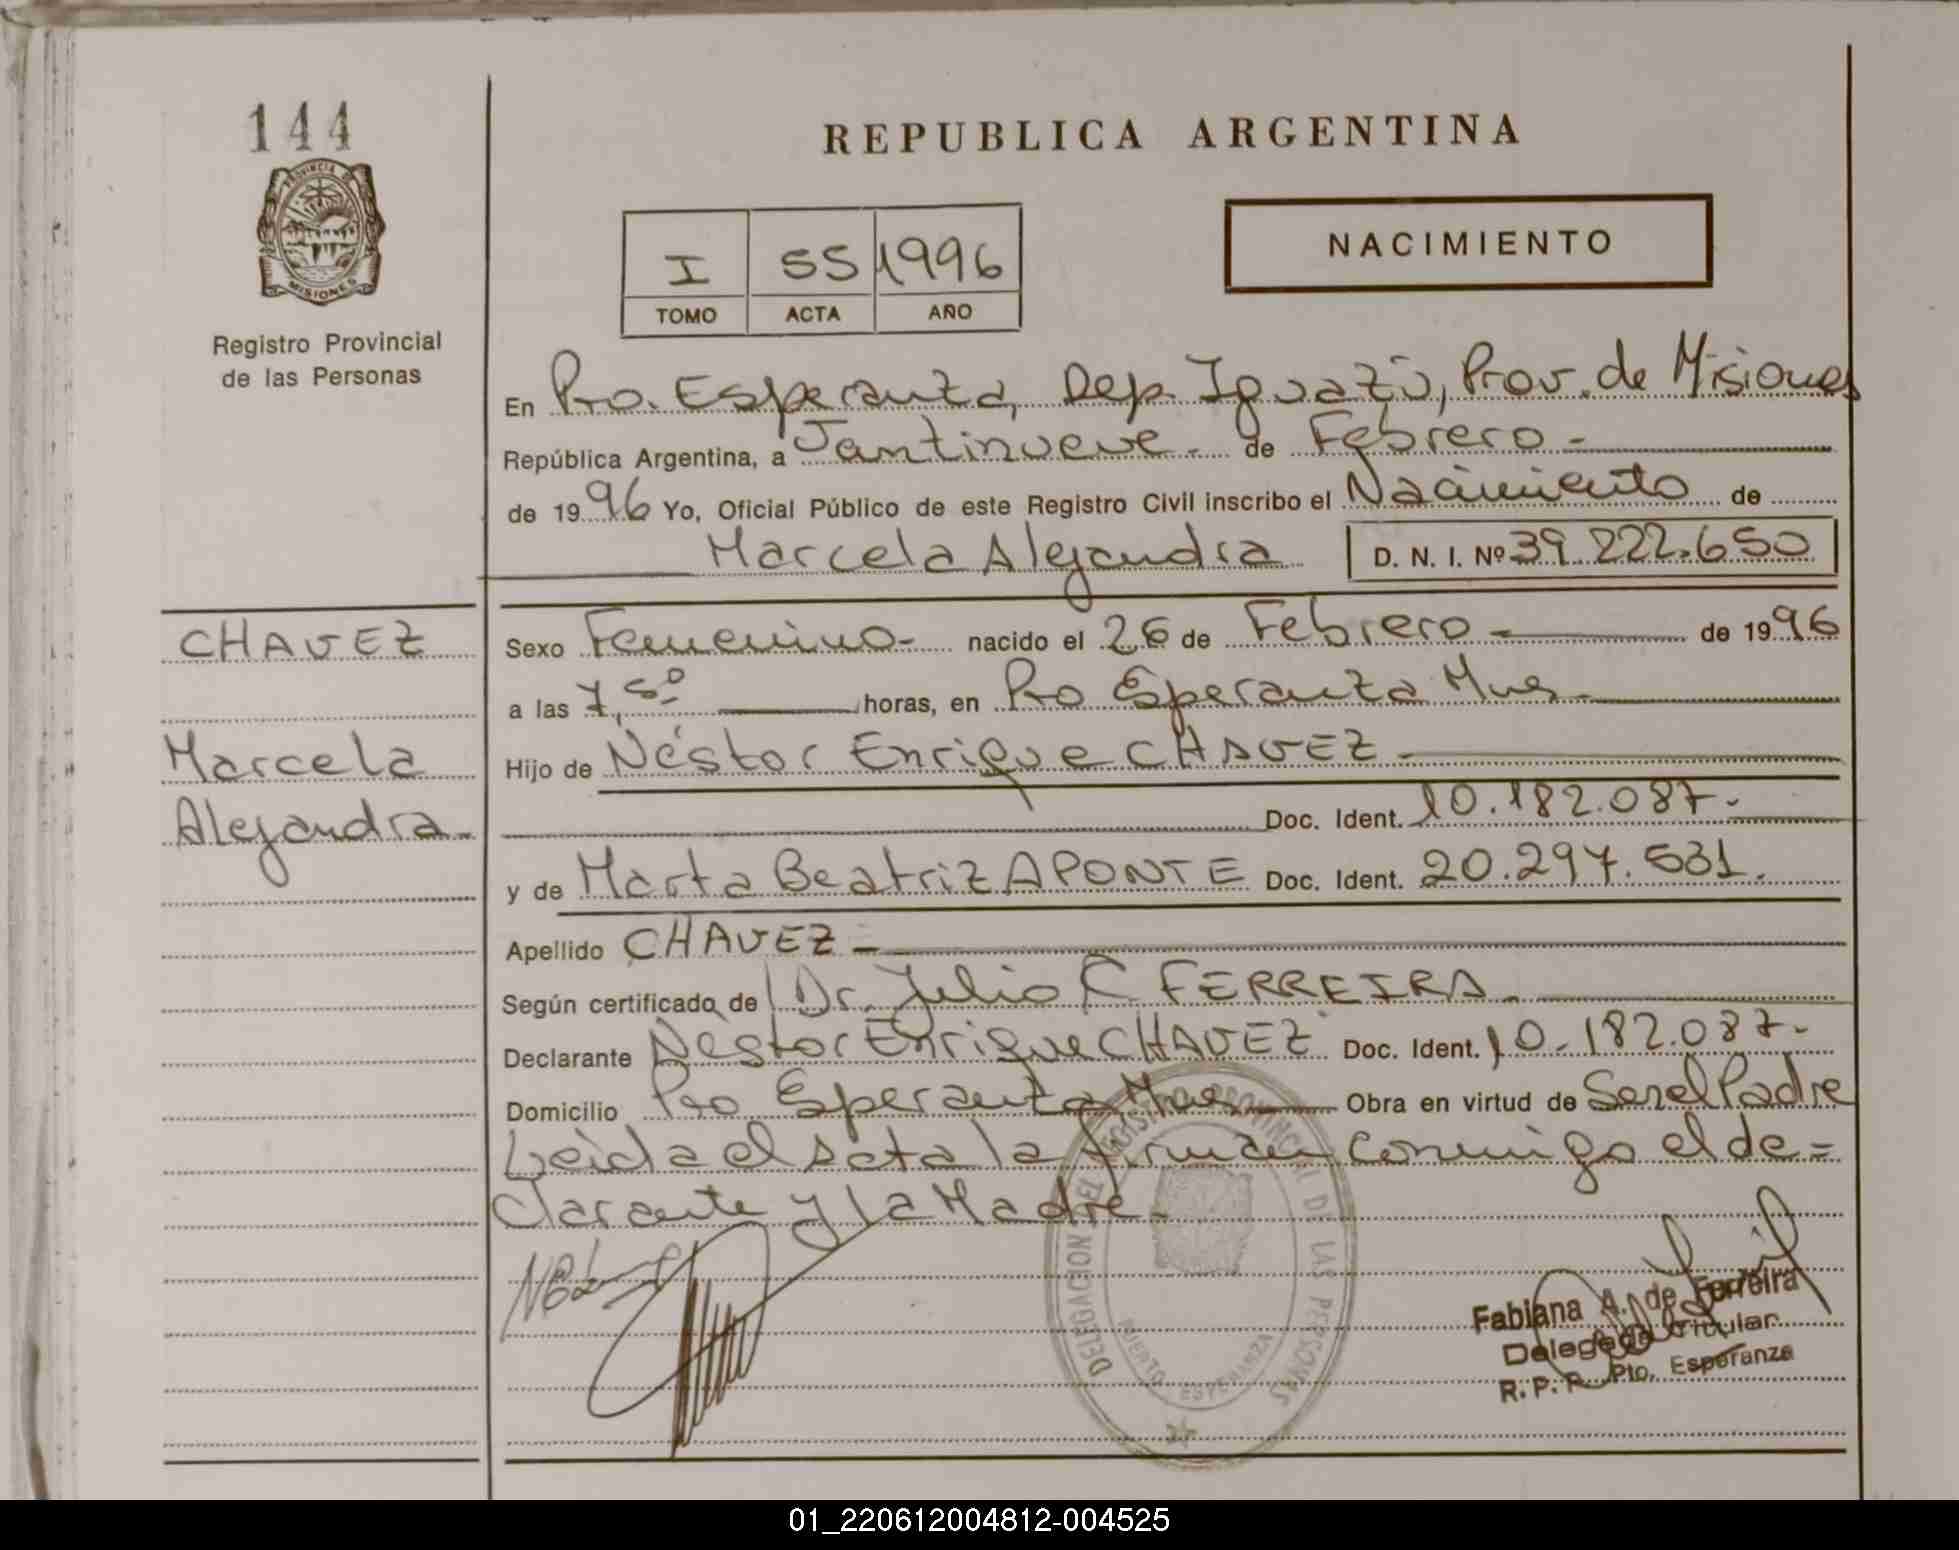 144
REPUBLICA ARGENTINA
PROVINCIA DE
MISIONES
Registro Provincial
de las Personas
I 55 1996
TOMO ACTA AÑO
NACIMIENTO
En Pto. Esperanza, Dep. Iguazú, Prov. de Misiones
República Argentina, a Jantinueve - de Febrero -
de 1996 Yo, Oficial Público de este Registro Civil inscribo el Nacimiento de
Marcela Alejandra D. N. I. Nº 39.222.650
CHAVEZ
Marcela
Alejandra -
Sexo Femenino - nacido el 26 de Febrero - de 1996
a las 7,50 horas, en Pto Esperanza Mnes -
Hijo de Néstor Enrique CHAVEZ -
Doc. Ident. 10.182.087.-
y de Marta Beatriz APONTE Doc. Ident. 20.297.531.
Apellido CHAVEZ -
Según certificado de Dr. Julio C. FERREIRA -
Declarante Nestor Enrique CHAVEZ Doc. Ident. 10.182.087.-
Domicilio Pto Esperanza Mnes Obra en virtud de Ser el Padre
Leida el acta la firman conmigo el de=
clarante y la Madre.-
DELEGACION DEL REGISTRO PROVINCIAL DE LAS PERSONAS
PUERTO ESPERANZA
Fabiana A. de Ferreira
Delegada Titular
R. P. P. Pto. Esperanza
01_220612004812-004525